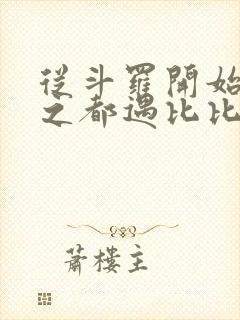 從斗羅開始
之都遇比比
蕭樓主